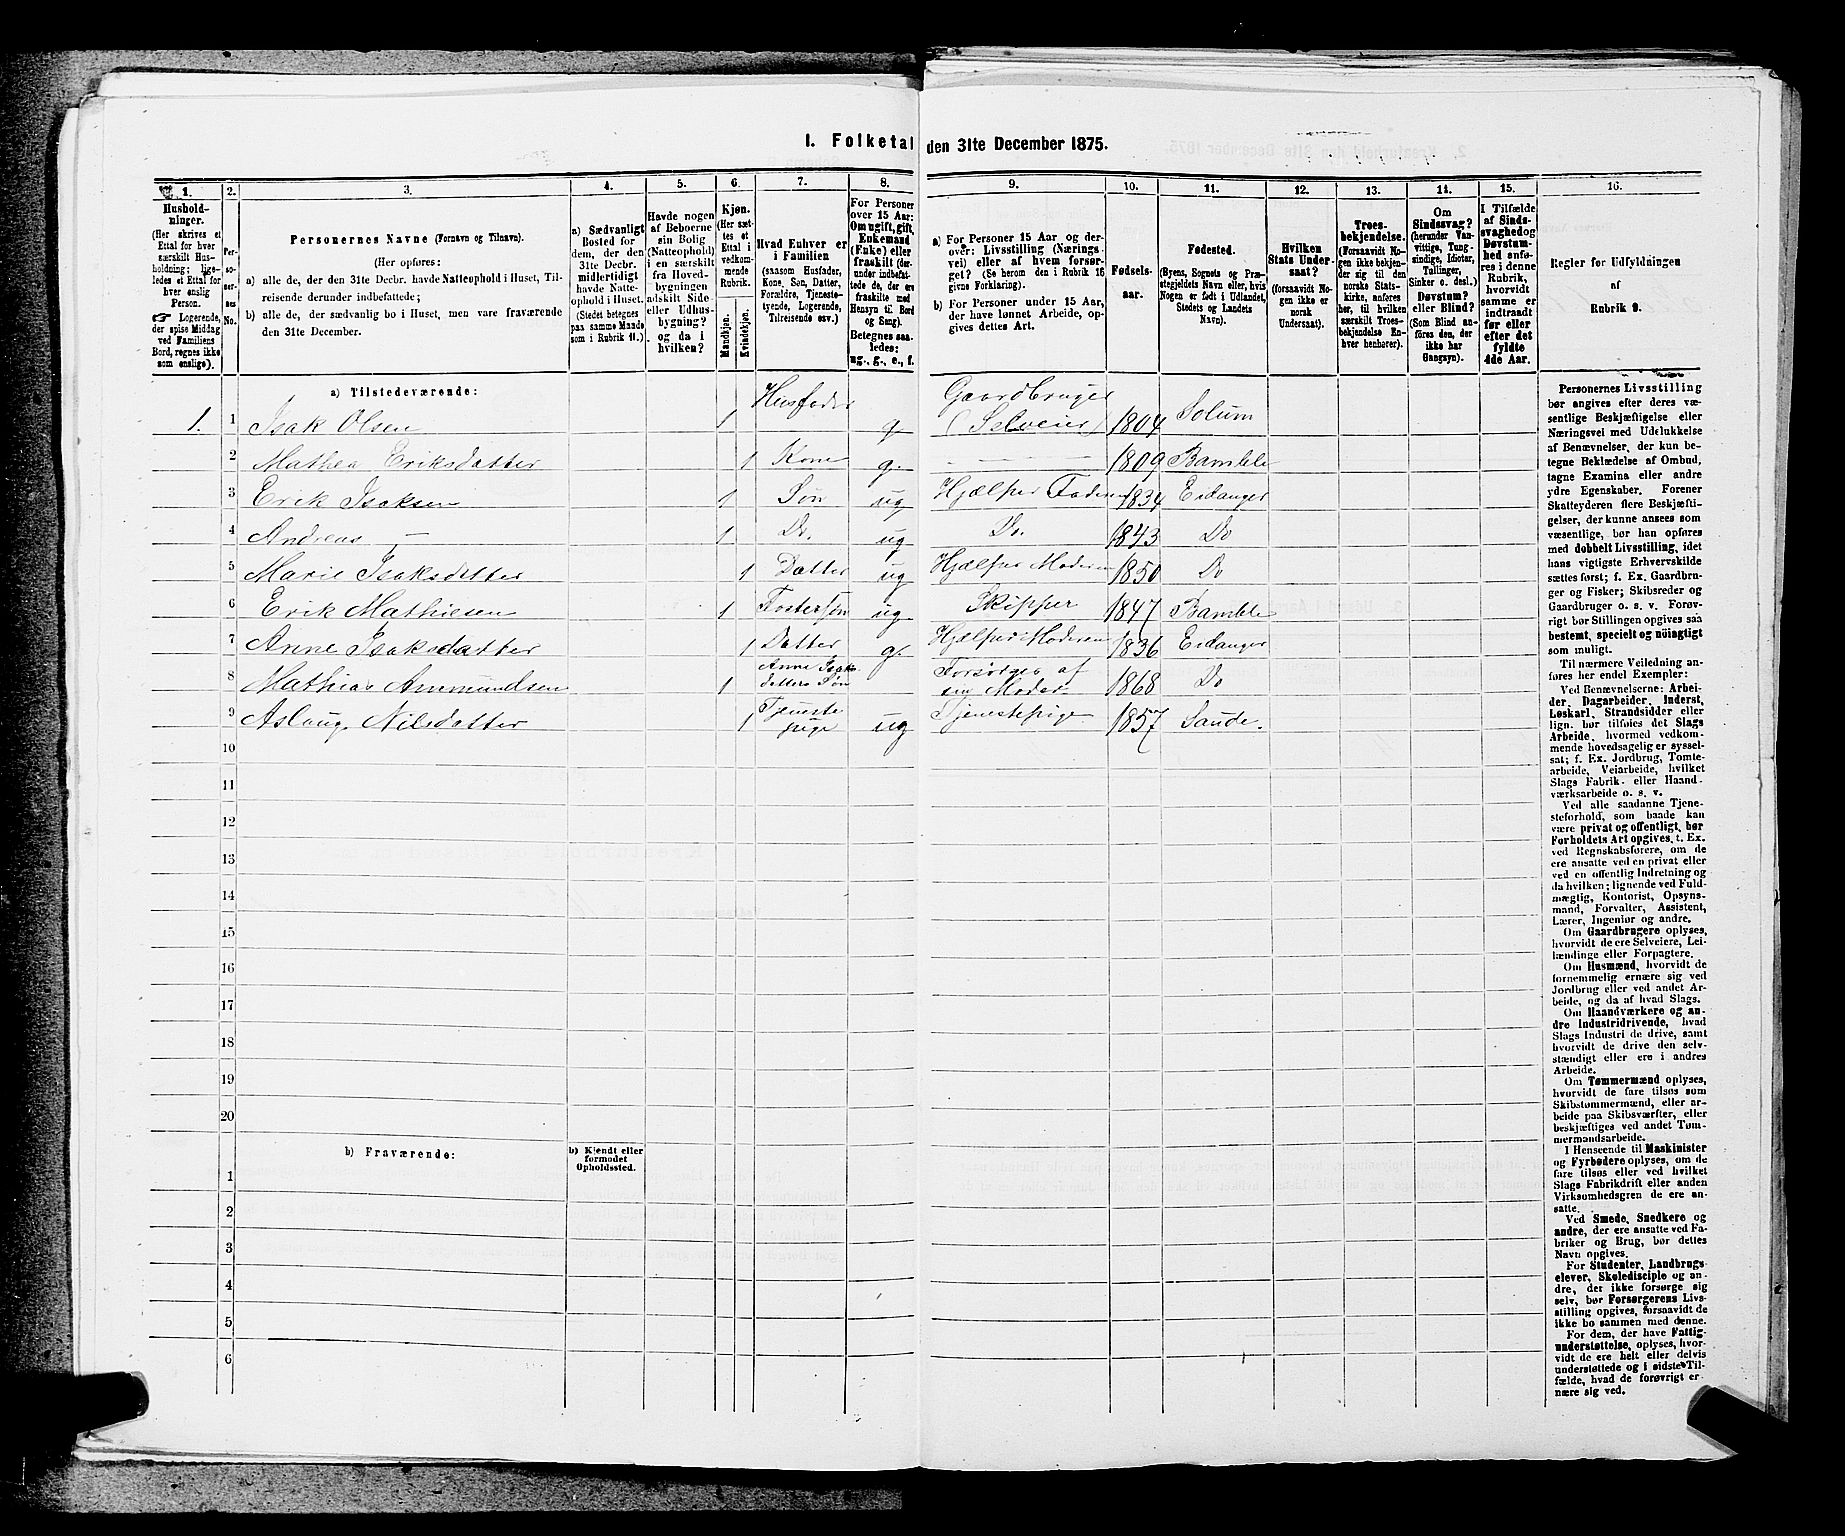 I. Folketal den 31te December 1875.
1. 2. 3. 4. 5. 6. 7. 8. 9. 10. 11. 12. 13. 14. 15. 16.
Hushold-
ninger.
(Her skrives et
Ettal for hver
særskilt Hus-
holdning; lige-
ledes et Ettal for
hver enslig
Person.
☞ Logerende,
der spise Middag
ved Familiens
Bord, regnes ikke
som enslige).
Per-
so-
ner-
nes
No.
Personernes Navne (Fornavn og Tilnavn).
(Her opføres:
a) alle de, der den 31te Decbr. havde Natteophold i Huset, Til-
reisende derunder indbefattede;
b) alle de, der sædvanlig bo i Huset, men vare fraværende
den 31te December.
a) Sædvanligt
Bosted for
dem, der den
31te Decbr.
midlertidigt
havde Natte-
ophold i Huset.
(Stedet betegnes
paa samme Maade
som i Rubrik 11.)
Havde nogen
af Beboerne
sin Bolig
(Natteophold)
i en særskilt
fra Hoved-
bygningen
adskilt Side-
eller Udhus-
bygning?
og da i
hvilken?
Kjøn.
(Her sæt-
tes et
Ettal i
vedkom-
mende
Rubrik.
Mandkjøn.
Kvindekjøn.
Hvad Enhver er
i Familien
(saasom Husfader,
Kone, Søn, Datter,
Forældre, Tjeneste-
tyende, Logerende,
Tilreisende osv.)
For Personer
over 15 Aar:
Om ugift, gift,
Enkemand
(Enke) eller
fraskilt (der-
under indbefat-
tede de, der ere
fraskilte med
Hensyn til Bord
og Seng).
Betegnes saa-
ledes:
ug., g., e., f.
a) For Personer 15 Aar og der-
over: Livsstilling (Nærings-
vei) eller af hvem forsør-
get? (Se herom den i Rubrik 16
givne Forklaring).
b) For Personer under 15 Aar,
der have lønnet Arbeide, op-
gives dettes Art.
Fødsels-
aar.
Fødested.
(Byens, Sognets og Præ-
stegjeldets Navn eller, hvis
Nogen er født i Udlandet,
Stedets og Landets
Navn).
Hvilken
Stats Under-
saat?
(forsaavidt No-
gen ikke er
norsk
Undersaat).
Troes-
bekjendelse.
(Forsaavidt No-
gen ikke bekjen-
der sig til den
norske Stats-
kirke, anføres
her, til hvilken
særskilt Troes-
bekjendelse En-
hver henhører).
Om
Sindssvag?
(herunder Van-
vittige, Tung-
sindige, Idioter,
Tullinger,
Sinker o. desl.)
Døvstum?
eller Blind?
(Som Blind an-
føres den, der
ikke har
Gangsyn).
I Tilfælde
af Sinds-
svaghed og
Døvstum-
hed anfø-
res i denne
Rubrik,
hvorvidt
samme er
indtraadt
før eller
efter det
fyldte
4de Aar.
Regler for Udfyldningen
af
Rubrik 9.
a) Tilstedeværende:
1. 1 Isak Olsen 1 Husfader g. Gaardbruger (Selveier) 1804 Solum
2 Mathea Eriksdatter 1 Kone g. — 1809 Bamble
3 Erik Isaksen 1 Søn ug Hjælper Faderen 1834 Eidanger
4 Andreas — 1 Do. ug Do. 1843 Do
5 Marie Isaksdatter 1 Datter ug Hjælper Moderen 1850 Do
6 Erik Mathiesen 1 Fostersøn ug Skipper 1847 Bamble
7 Anne Isaksdatter 1 Datter g. Hjælper Moderen 1836 Eidanger
8 Mathias Ammundsen 1 Anne Isaksdatters Søn Forsørges af sin Moder 1868 Do
9 Aslaug Nilsdatter 1 Tjenestepige ug Tjenestepige 1857 Saude.
10
11
12
13
14
15
16
17
18
19
20
b) Fraværende:
b) Kjendt eller
formodet
Opholdssted.
1
2
3
4
5
6
Personernes Livsstilling
bør angives efter deres væ-
sentlige Beskjæftigelse eller
Næringsvei med Udelukkelse
af Benævnelser, der kun be-
tegne Beklædelse af Ombud,
tagne Examina eller andre
ydre Egenskaber. Forener
Skatteyderen flere Beskjæfti-
gelser, der kunne ansees som
væsentlige, bør han opføres
med dobbelt Livsstilling, idet
hans vigtigste Erhvervskilde
sættes først; f. Ex. Gaardbru-
ger og Fisker; Skibsreder og
Gaardbruger o. s. v. Forøv-
rigt bør Stillingen opgives saa
bestemt, specielt og nöiagtigt
som muligt.
Til nærmere Veiledning an-
føres her endel Exempler:
Ved Benævnelserne: Arbei-
der, Dagarbeider, Inderst,
Løskarl, Strandsidder eller
lign. bør tilføies det Slags
Arbeide, hvormed vedkom-
mende hovedsagelig er syssel-
sat; f. Ex. Jordbrug, Tomte-
arbeide, Veiarbeide, hvilket
Slags Fabrik- eller Haand-
værksarbeide o. s. v.
Ved alle saadanne Tjene-
steforhold, som baade kan
være privat og offentligt, bør
Forholdets Art opgives, t. Ex.
ved Regnskabsførere, om de
ere ansatte ved en privat eller
ved en offentlig Indretning og
da hvilken; lignende ved Fuld-
mægtig, Kontorist, Opsyns-
mand, Forvalter, Assistent,
Lærer, Ingeniør og andre.
Om Gaardbrugere oplyses,
hvorvidt de ere Selveiere, Lei-
lændinge eller Forpagtere.
Om Husmænd, hvorvidt de
fornemmelig ernære sig ved
Jordbrug eller ved andet Ar-
beide, og da af hvad Slags.
Om Haandværkere og an-
dre Industridrivende, hvad
Slags Industri de drive, samt
hvorvidt de drive den selv-
stændigt eller ere i andres
Arbeide.
Om Tømmermænd oplyses,
hvorvidt de fare tilsøs som
Skibstømmermænd, eller ar-
beide paa Skibsværfter, eller
beskjæftiges ved andet Tøm-
mermandsarbeide.
I Henseende til Maskinister
og Fyrbødere oplyses, om de
fare tilsøs eller ved hvilket
Slags Fabrikdrift eller anden
Virksomhedsgren de ere an-
satte.
Ved Smede, Snedkere og
andre, der ere ansatte ved Fa-
briker og Brug, bør dettes
Navn opgives.
For Studenter, Landbrugs-
elever, Skoledisciple og an-
dre, der ikke forsørge sig
selv, bør Forsørgerens Livs-
stilling opgives, forsaavidt de
ikke bo sammen med denne.
For dem, der have Fattig-
understøttelse, oplyses, hvor-
vidt de ere helt eller delvis
understøttede og i sidste Til-
fælde, hvad de forøvrigt er-
nære sig ved.